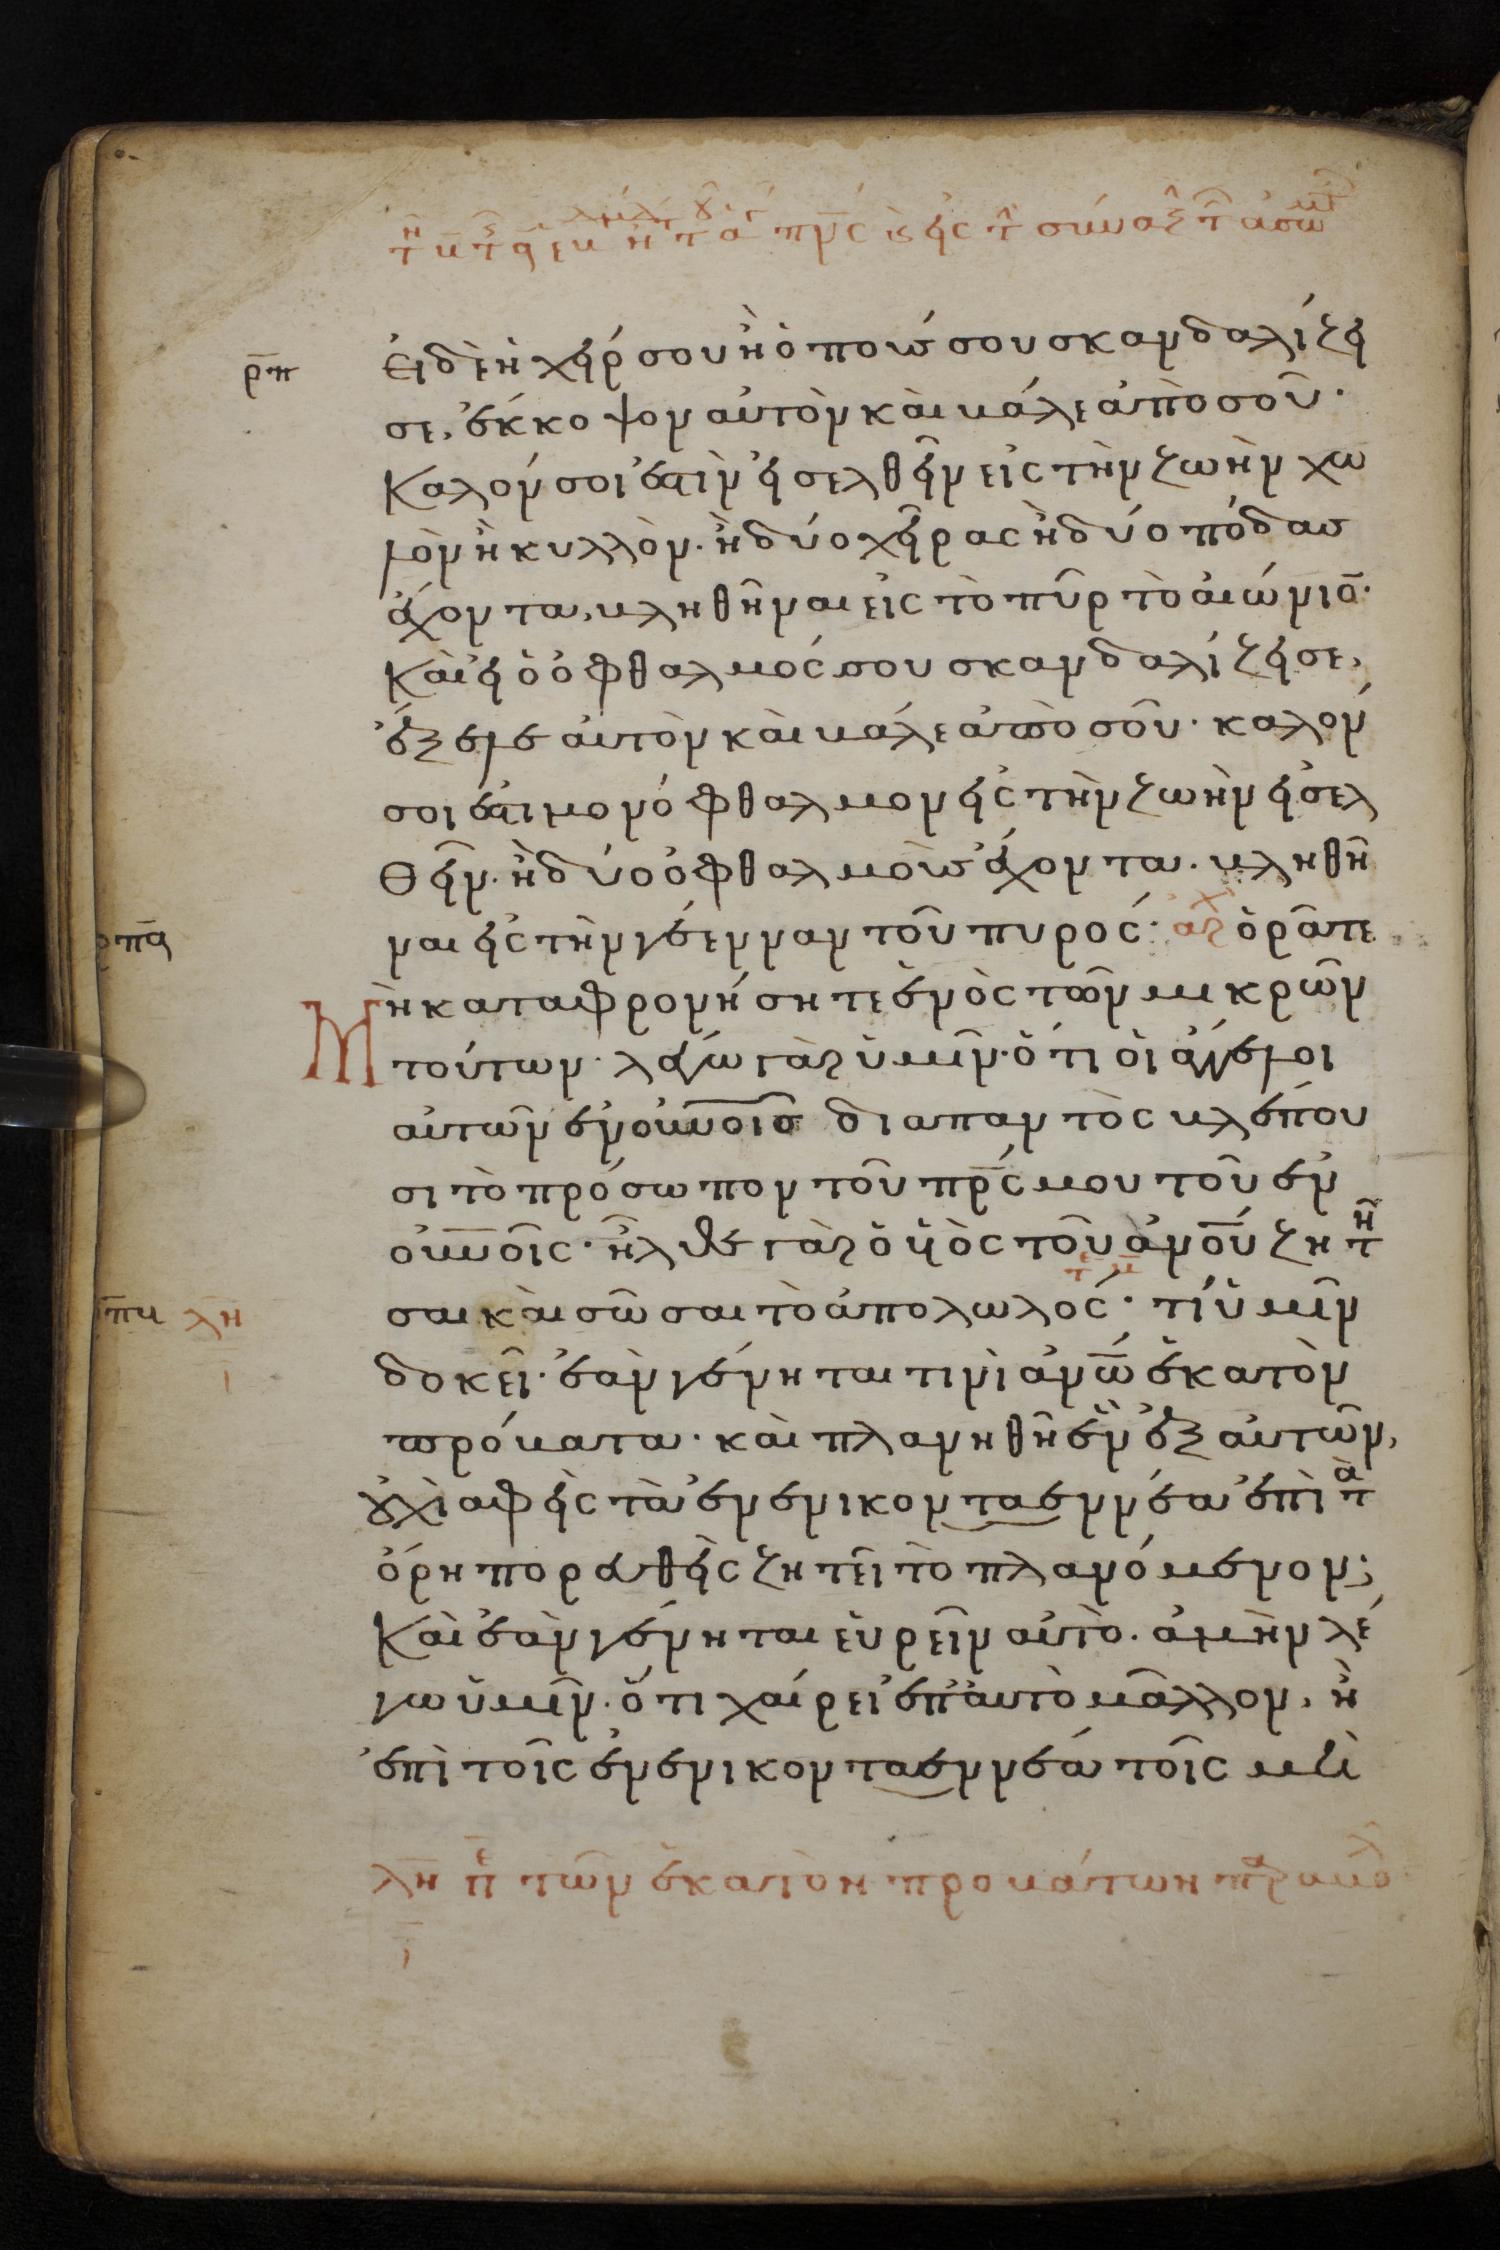 ρ̅π̅
εἰ δὲ ἡ χείρ σου ἢ ὁ πούς σου σκανδαλίζει
σε, ἔκκοψον αὐτὸν καὶ βάλε ἀπὸ σοῦ·
Καλόν σοι ἐστὶν εἰσελθεῖν εἰς τὴν ζωὴν χω
λὸν ἢ κυλλὸν· ἢ δύο χεῖρας ἢ δύο πόδας
ἔχοντα, βληθῆναι εἰς τὸ πῦρ τὸ αἰώνιο̅·
Καὶ εἰ ὁ ὀφθαλμός σου σκανδαλίζει σε,
ἔξελε αὐτὸν καὶ βάλε ἀπὸ σοῦ· καλόν
σοι ἐστι μονόφθαλμον εἰς τὴν ζωὴν εἰσελ
θεῖν· ἢ δύο ὀφθαλμοὺς ἔχοντα· βληθῆ
ναι εἰς τὴν γέενναν τοῦ πυρός· ἀρχ ὁρᾶτε
ρ̅π̅α̅
Μὴ καταφρονήσητε ἑνὸς τῶν μικρῶν
τούτων· λέγω γὰρ ὑμῖν· ὅτι οἱ ἄγγελοι
αὐτῶν ἐν οὐνοις διαπαντὸς βλέπου
σι τὸ πρόσωπον τοῦ π̅ρ̅ς μου τοῦ ἐν
οὐνοῖς· ἦλθε γὰρ ὁ υἱὸς τοῦ ἀνου ζητῆ
σαι καὶ σῶσαι τὸ ἀπολωλός· τί ὑμῖν
π̅β̅ λ̅η̅
ι̅
δοκεῖ· ἐὰν γένηται τινὶ ἀνω ἑκατὸν
πρόβατα· καὶ πλανηθῆ ἓν ἐξ αὐτῶν,
οὐχὶ ἀφεὶς τὰ ἐνενικονταεννέα ἐπὶ τὰ
ὄρη πορευθεὶς ζητεῖ τὸ πλανόμενον;
Καὶ ἐὰν γένηται εὑρεῖν αὐτὸ· ἀμὴν λέ
γω ὑμῖν· ὅτι χαίρει ἐπ' αὐτὸ μᾶλλον, ἢ
ἐπὶ τοῖς ἐνενικονταεννέα τοῖς μὴ
λ̅η̅ π̅ε τῶν ἑκατὸν προβάτων παραβο
ι̅